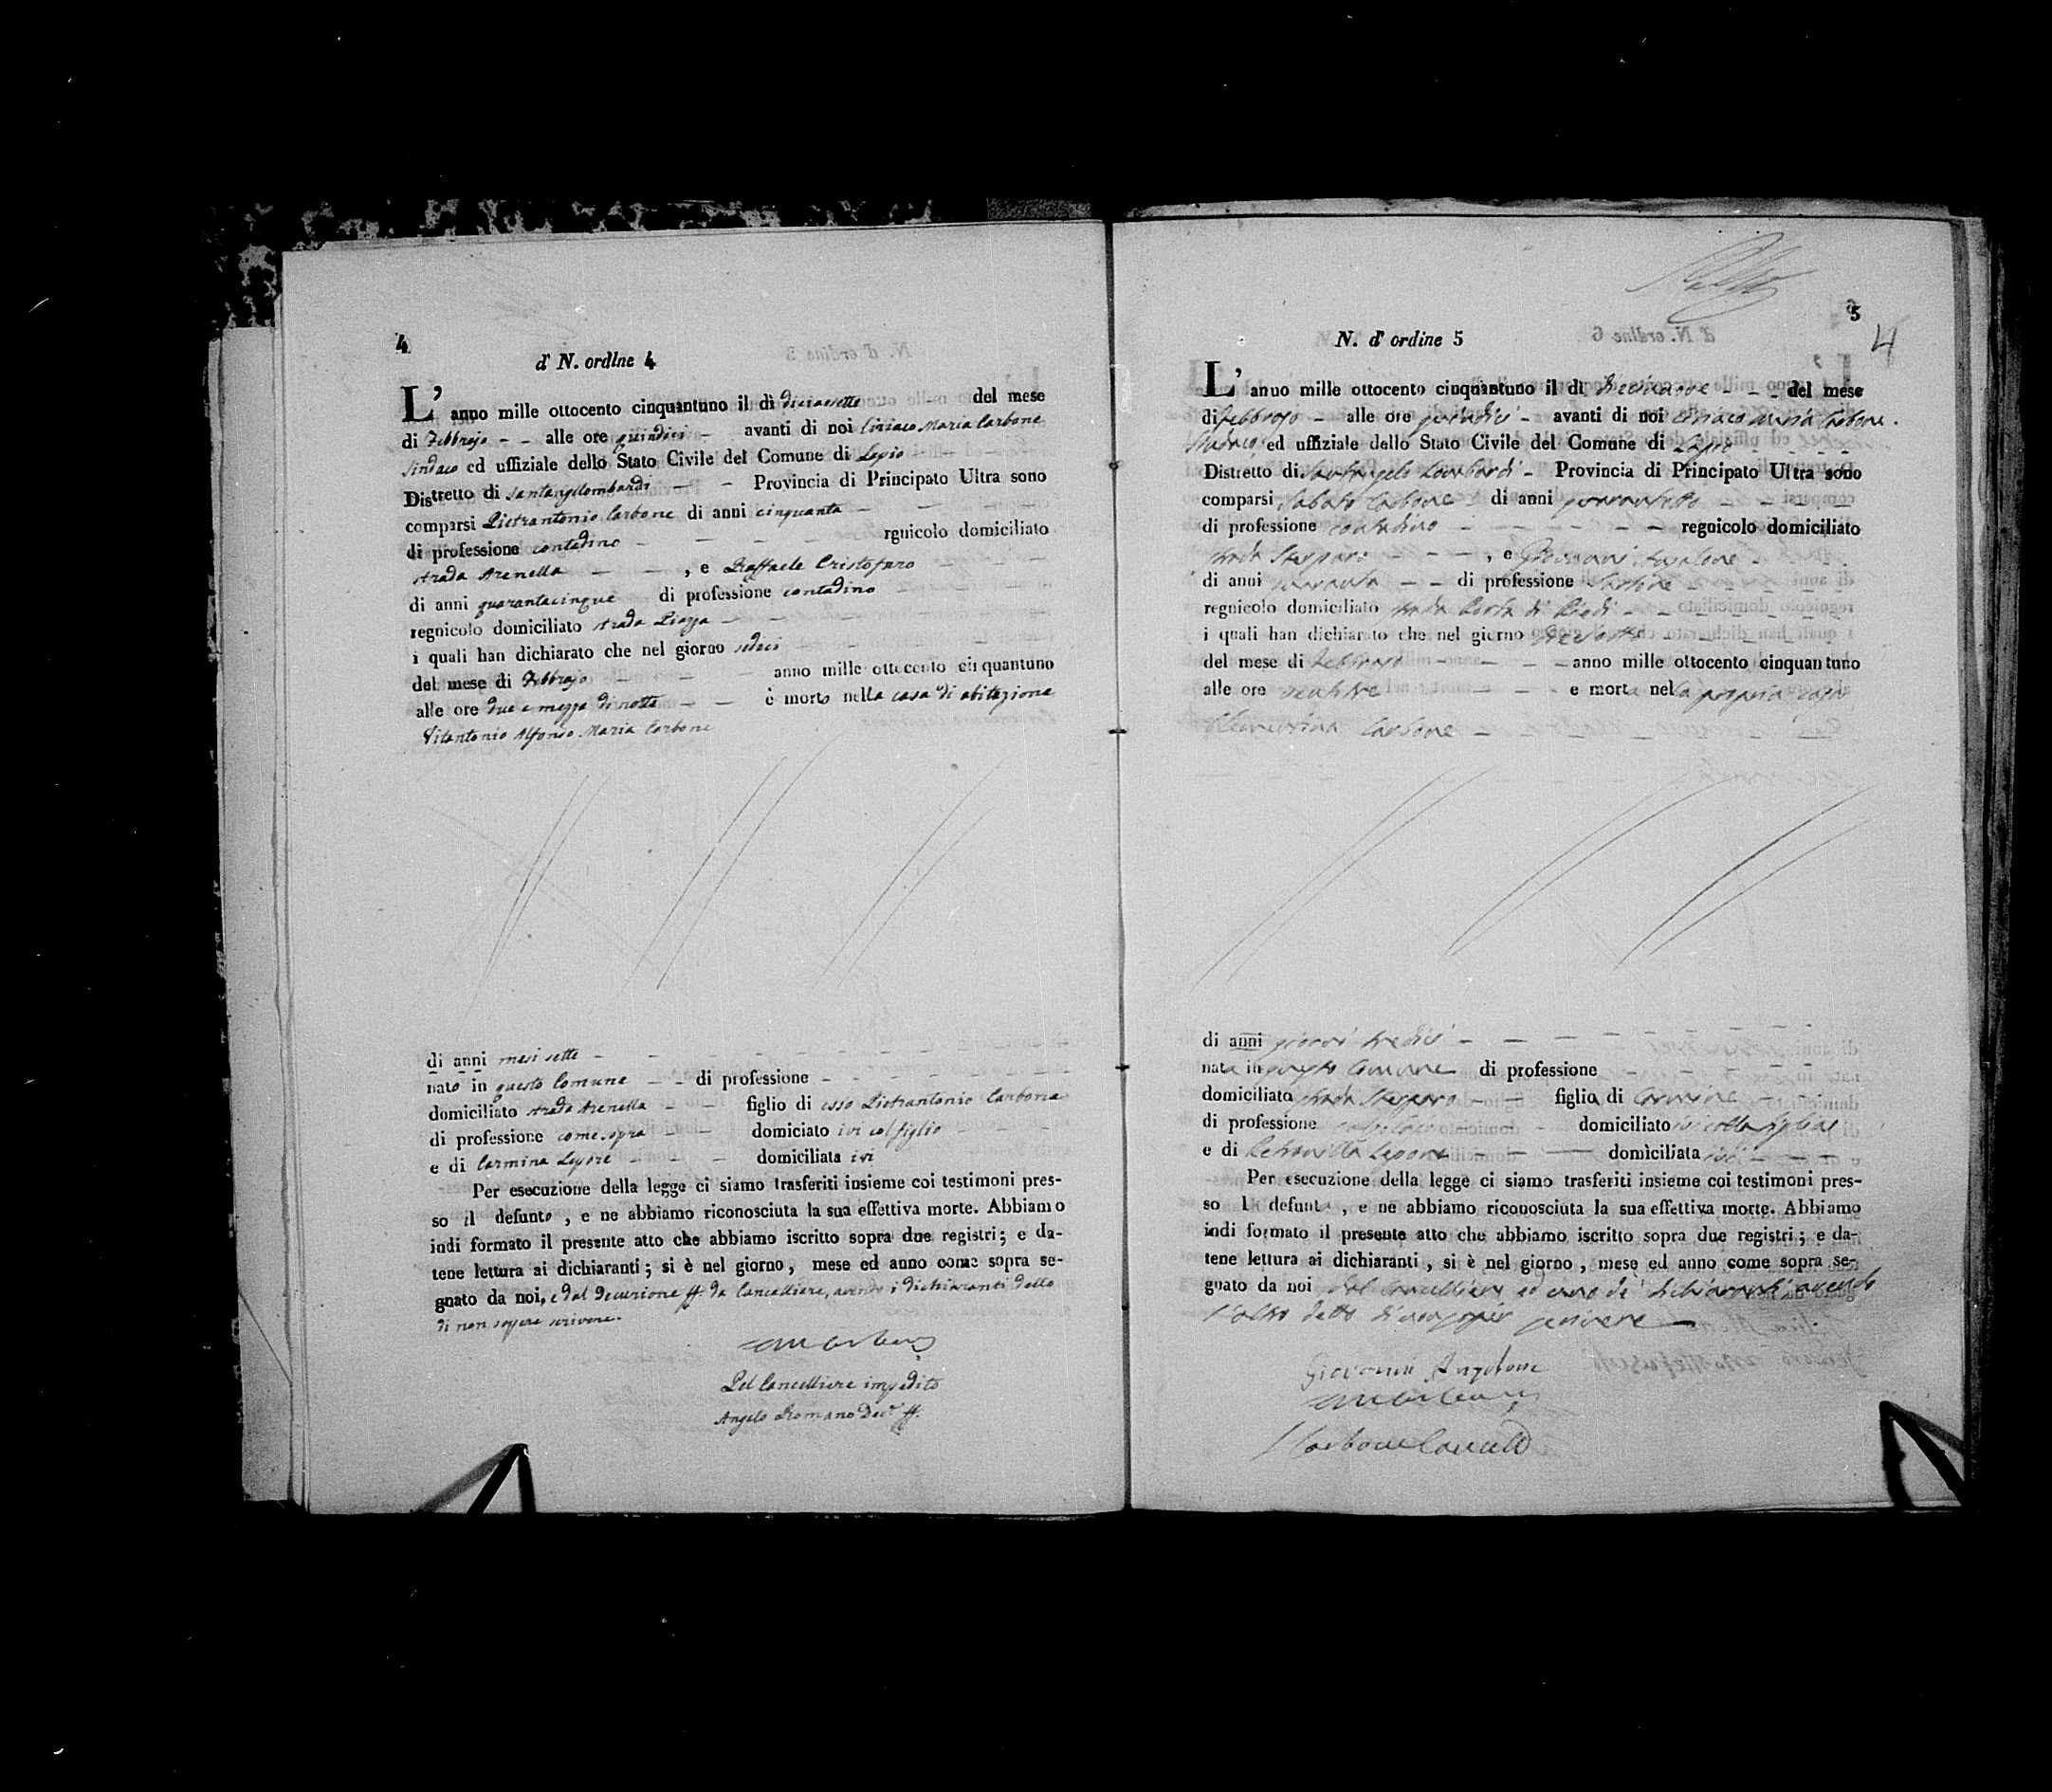 4
d' N. ordlne 4
L' anno mille ottocento cinquantuno il dì diciassette del mese
di Febbrajo - - alle ore quindici - avanti di noi Ciriaco Maria Carbone
Sindaco ed uffiziale dello Stato Civile del Comune di Lapio
Distretto di Santangelombardi - - Provincia di Principato Ultra sono
comparsi Pietrantonio Carbone di anni cinquanta -
di professione contadino - - - - - rgnicolo domiciliato
strada Arenella - - , e Raffaele Cristofaro
di anni quarantacinque di professione contadino
regnicolo domiciliato strada Piazza -
i quali han dichiarato che nel giorno sedici
del mese di Febbrajo - - - anno mille ottocento cinquantuno
alle ore due e mezza di notte - - è morto nella casa di abitazione
Vitantonio Alfonso Maria Carbone
di anni mesi sette -
nato in questo Comune - - di professione -
domiciliato strada Arenella - - figlio di esso Pietrantonio Carbone
di professione come sopra - - domiciato ivi col figlio
e di Carmina Lepore - - - domiciliata ivi
Per esecuzione della legge ci siamo trasferiti insieme coi testimoni pres-
so il defunto , e ne abbiamo riconosciuta la sua effettiva morte. Abbiamo
indi formato il presente atto che abbiamo iscritto sopra due registri; e da-
tene lettura ai dichiaranti ; si è nel giorno , mese ed anno come sopra se-
gnato da noi, e dal Decurione ff da Cancelliere, avendo i dichiaranti detto
di non sapere scrivere.
Pel Cancelliere impedito
Angelo Romano Dec.e ff.
5
4
N. d' ordine 5
L' anno mille ottocento cinquantuno il dì diecinnove - - - del mese
di febbrojo - alle ore quindici - avanti di noi Ciriaco Maria Carbone
Sindaco ed uffiziale dello Stato Civile del Comune di Lapio
Distretto di Santangelo Lombardi - Provincia di Principato Ultra sono
comparsi Sabato Carbone - di anni
di professione contadino - - - - - regnicolo domiciliato
strada - - - , e Giovanni Angelone -
di anni quaranta - - di professione
regnicolo domiciliato strada Porta di Piedi - -
i quali han dichiarato che nel giorno dieciotto
del mese di Febbrajo - - - anno mille ottocento cinquantuno
alle ore ventitre - - - e morta nella propria casa
Carbone - - - -
di anni giorni tredici - - - -
nata in questo Comune di professione - - -
domiciliato strada - - figlia di Carmine - -
di professione - domiciliato ivi colla figlia
e di Petronilla Lepore - - - domiciliata ivi - - -
Per esecuzione della legge ci siamo trasferiti insieme coi testimoni pres-
so l defunt , e ne abbiamo riconosciuta la sua effettiva morte. Abbiamo
indi formato il presente atto che abbiamo iscritto sopra due registri ; e da-
tene lettura ai dichiaranti , si è nel giorno , mese ed anno come sopra se-
gnato da noi dal Cancelliere ed uno de' dichiaranti avendo
l'altro detto di non saper scrivere -
Giovanni Angelone
Carbone Cancell